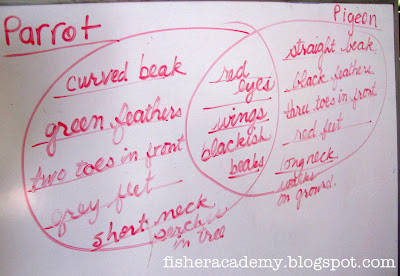 Parrot
curved beak
green feathers
two toes in front
grey feet
short neck
perches
in tree
red
eyes
wings
blackish
beaks
Pigeon
straight beak
black feathers
three toes in front
red feet
long neck
walks
on ground.
fisheracademy.blogspot.com